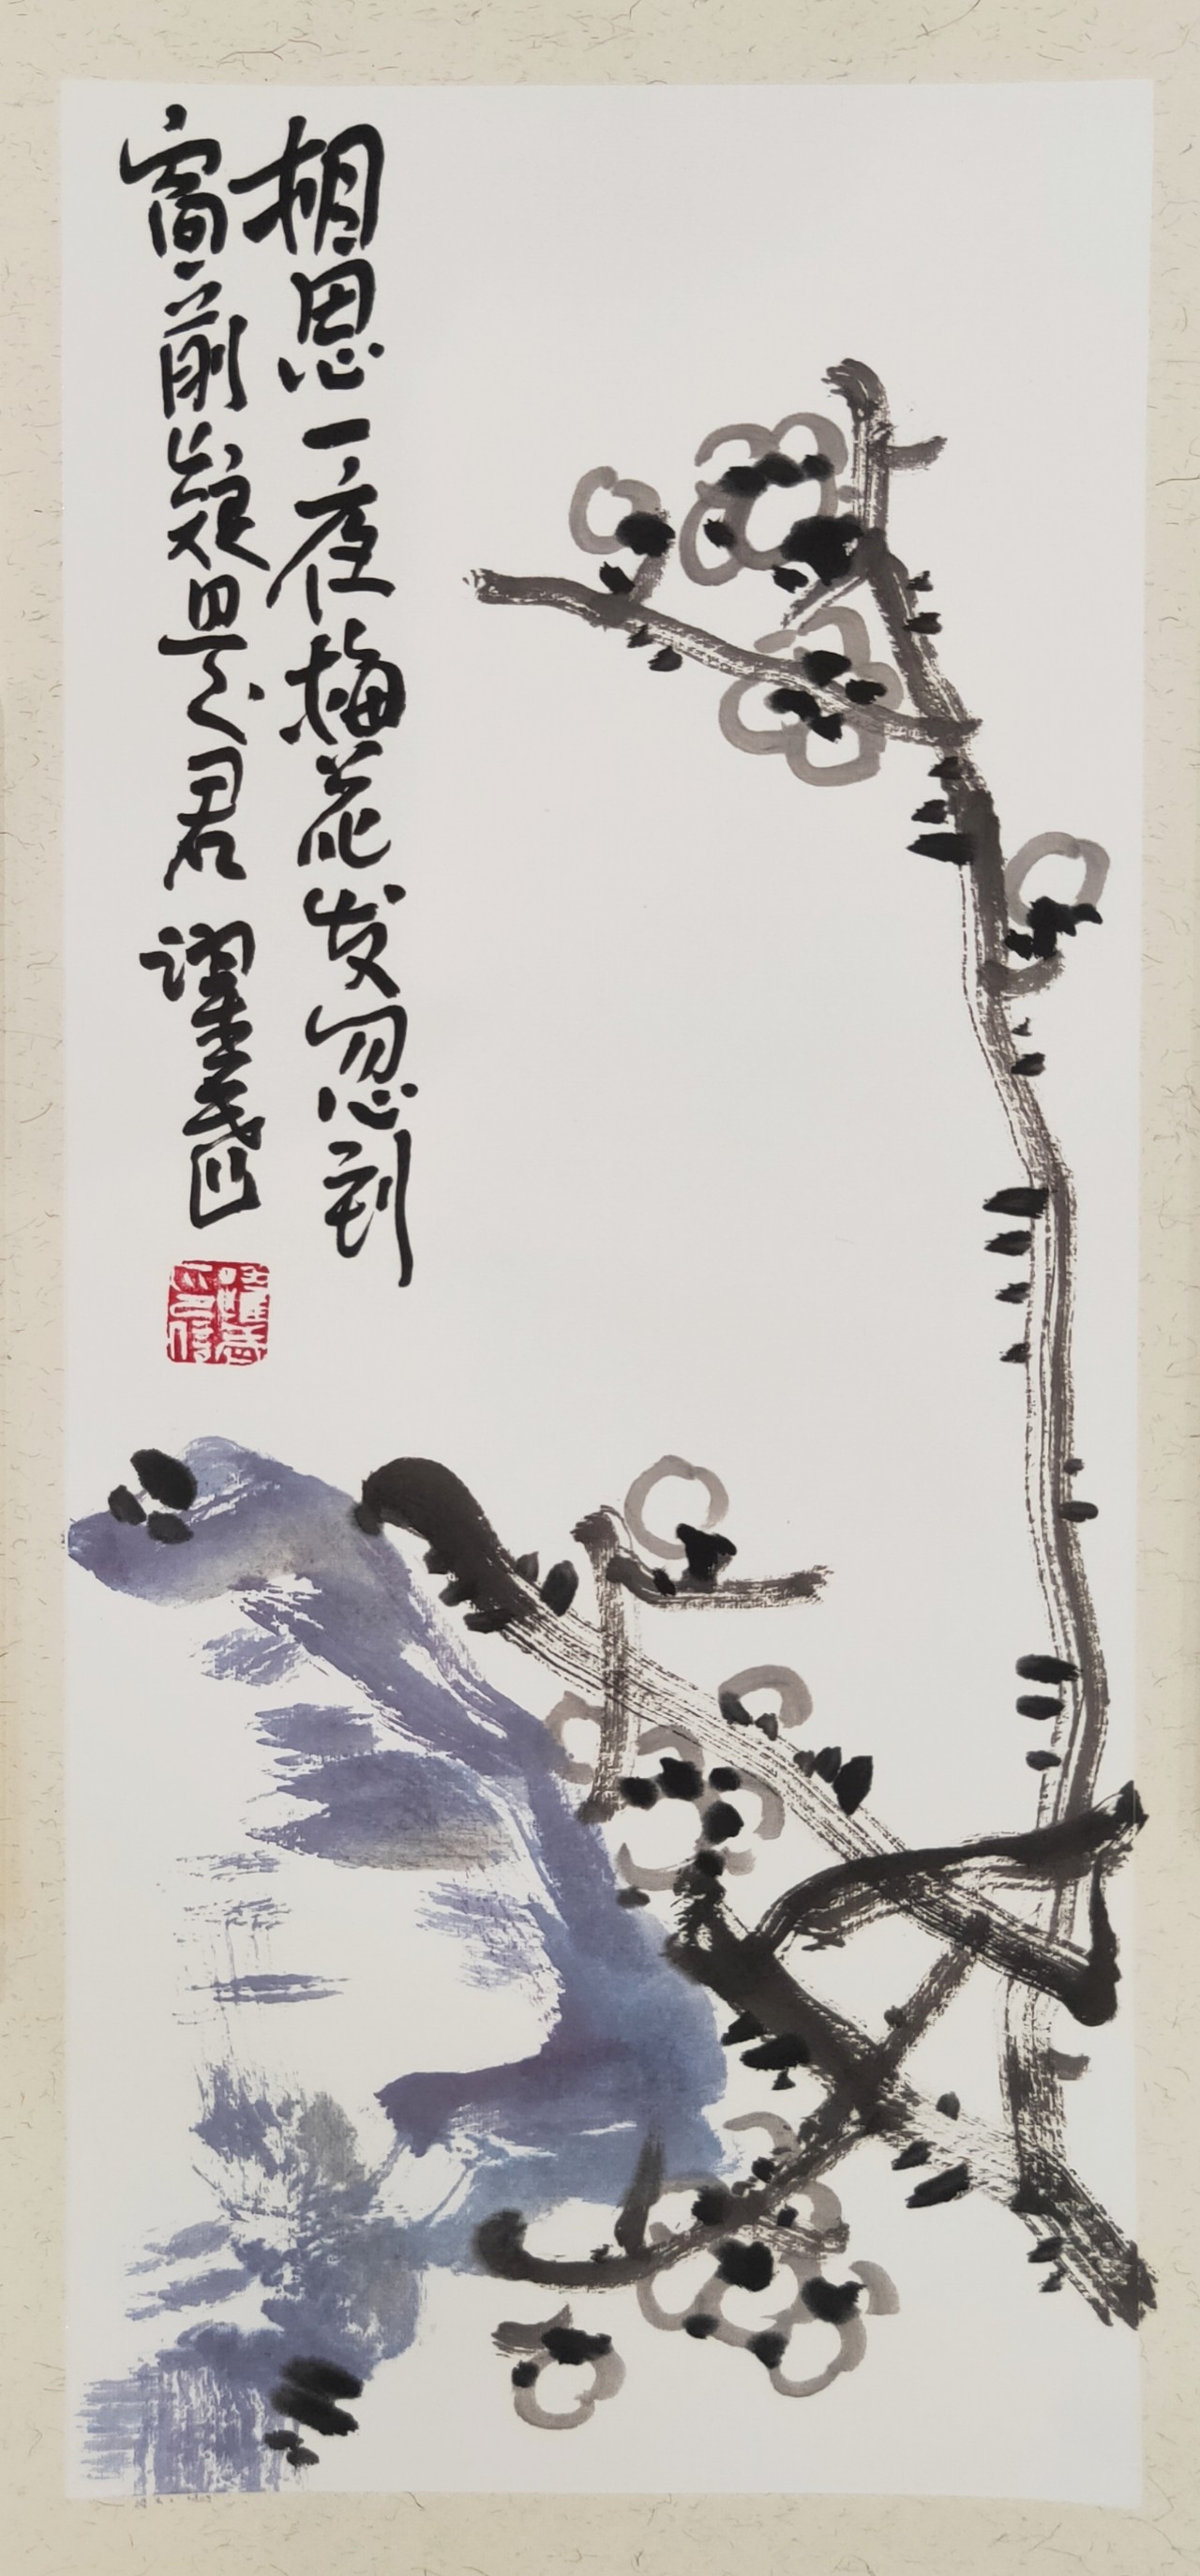 相思一夜梅花发忽到
窗前疑是君